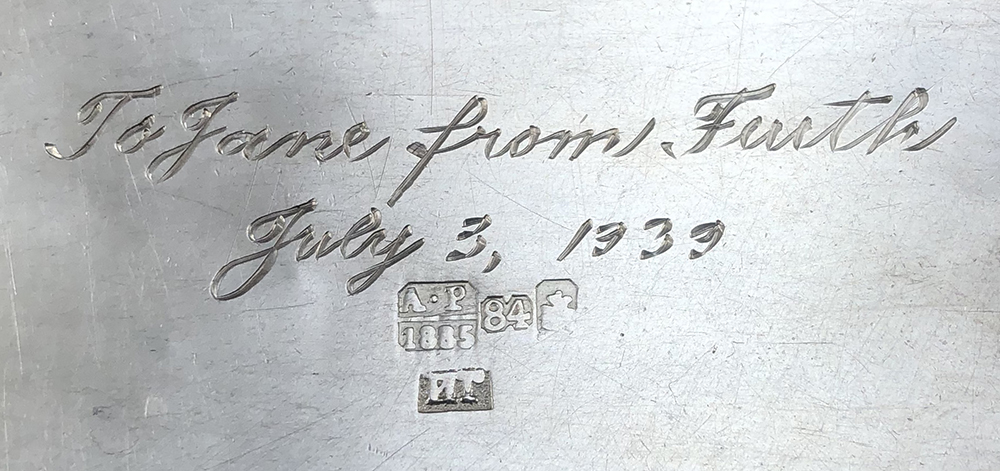 To Jane from Faith
July 3, 1939
A·P
1885
84